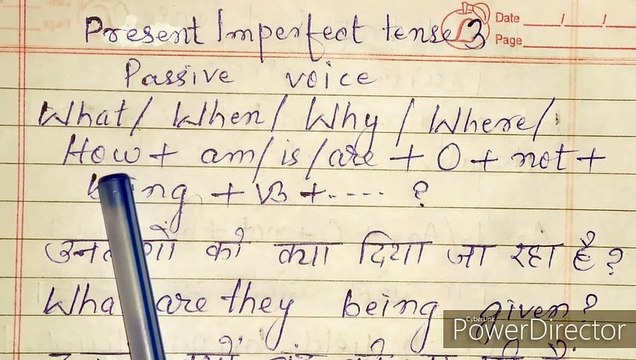 Present Imperfect tense 3
Date / /
Page
Passive voice
What / When / Why / Where /
How + am / is / are + O + not +
+ V3 + ..... ?
को क्या दिया जा रहा है ?
are they being given ?
CyberLink
PowerDirector